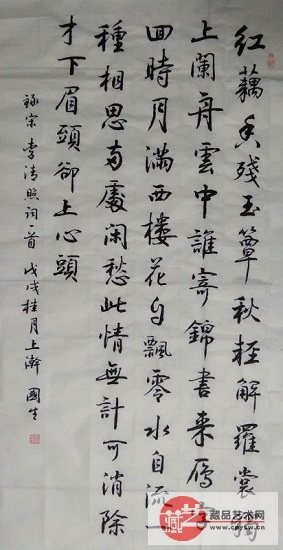 紅藕香殘玉簟秋輕解羅裳獨
上闌舟雲中誰寄錦書來雁字
回時月滿西樓花自飄零水自流一
種相思兩處閑愁此情無計可消除
才下眉頭卻上心頭
錄宋李清照詞一首 戊戌桂月上澣 國生
藏品艺术网
www.cpysw.cn